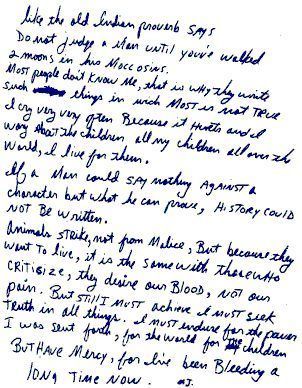 like the old Indian proverb says
Do not judge a man until you've walked
2 moons in his Moccosins.
Most people don't know me, that is why they write
such things in wich MOST is not TRUE
I cry very very often Because it Hurts and I
wory about the children all my children all over the
World, I live for them.
If a Man could SAY nothing AGAINST a
character but what he can prove, HISTORY COULD
NOT BE WRITTEN.
Animals STRIKE, not from Malice, But because they
want To live, it is the same with those WHO
CRITISIZE, they desire our BLOOD, NOT our
pain. But STill I MUST achieve I must seek
Truth in all things. I must endure for the power
I was sent forth, for the world for the children
BUT HAVE Mercy, for I've been Bleeding a
LONG TIME NOW.